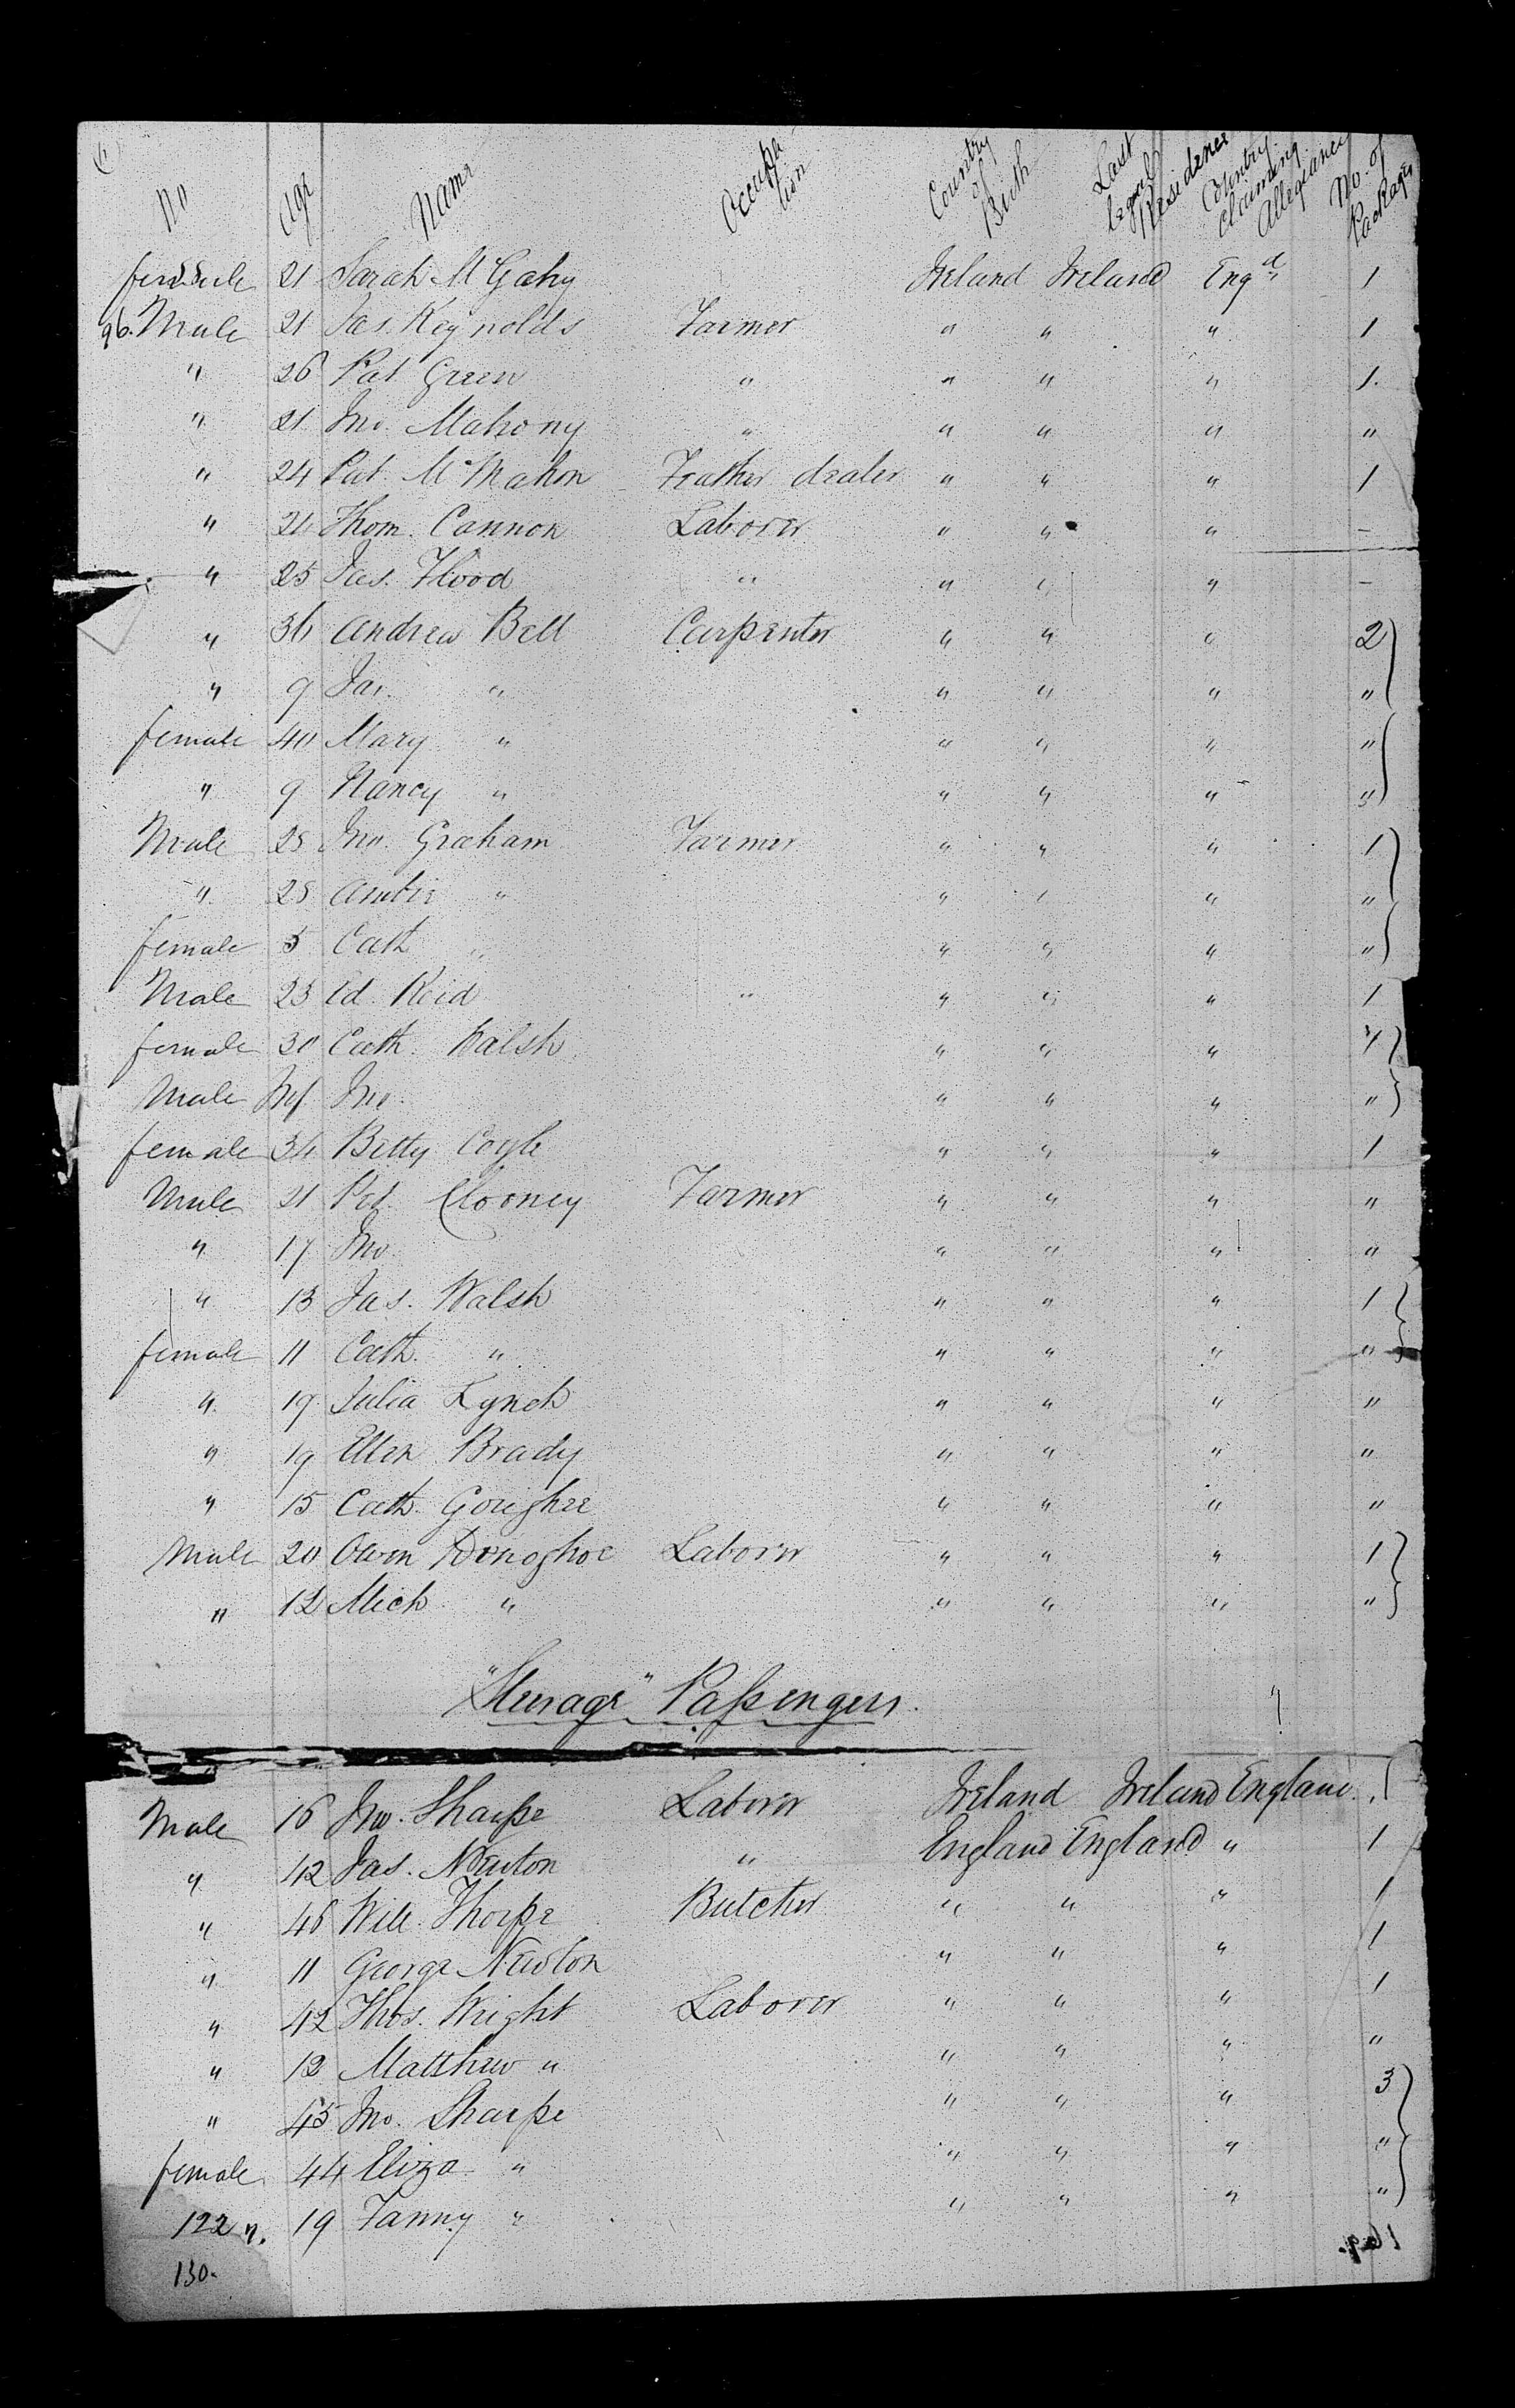 No Age Name Occupation Country of Birth Last legal Residence Country claiming Allegiance No. of Packages
female 21 Sarah McGahy Ireland Ireland Engd 1
96. Male 21 Jas. Reynolds Farmer " " " 1
" 26 Pat Green " " " " 1.
" 21 Jno. Mahony " " " " "
" 24 Pat. McMahon Feather dealer " " " 1
" 24 Thom. Cannon Laborer " " " -
" 25 Jas. Flood " " " " -
" 36 Andrew Bell Carpenter " " " 2
" 9 Jas. " " " " "
female 40 Mary " " " " "
" 9 Nancy " " " " "
Male 28 Jno. Graham Farmer " " " 1
" 28 " " " " "
female 5 Cath " " " " "
Male 23 Ed. Reid " " " " 1
female 30 Cath. Walsh " " "
Male Inf Jno. " " " "
female 34 Betty Coyle " " " 1
Male 21 Pat. Clooney Farmer " " " "
" 17 Jno. " " " "
" 13 Jas. Walsh " " " 1
female 11 Cath. " " " " "
" 19 Julia Lynch " " " "
" 19 Ellen Brady " " " "
" 15 Cath. " " " "
Male 20 Owen Donoghoe Laborer " " " 1
" 12 Mich " " " " "
"Steerage" Passengers.
Male 16 Jno. Sharpe Laborer Ireland Ireland England 1
" 42 Jas. Newton " England England " 1
" 46 Will Thorpe Butcher " " " 1
" 11 George Newton " " " 1
" 42 Thos. Wright Laborer " " " 1
" 12 Matthew " " " " "
" 45 Jno. Sharpe " " " 3
female 44 Eliza " " " " "
122 " 19 Fanny " " " " "
130.